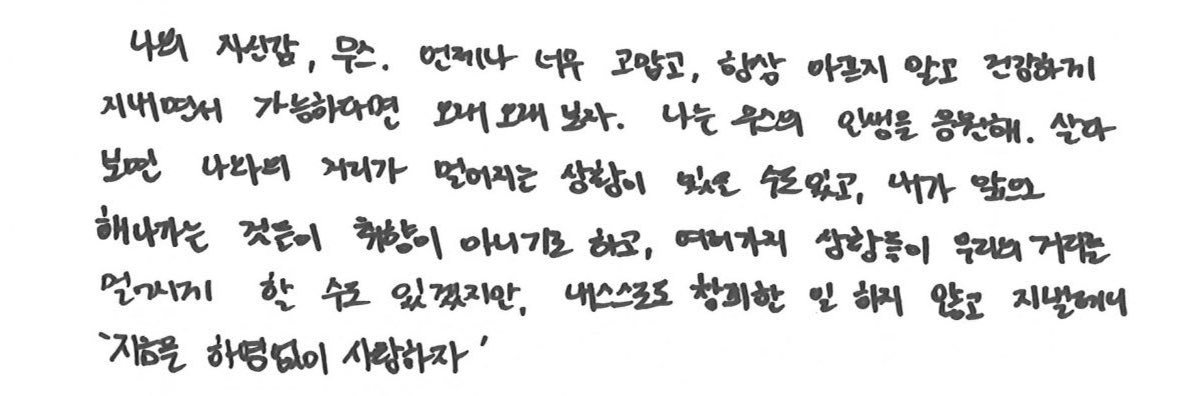 나의 자신감, 무스. 언제나 너무 고맙고, 항상 아프지 않고 건강하게
지내면서 가능하다면 오래 오래 보자. 나는 무스의 인생을 응원해. 살다
보면 나와의 거리가 멀어지는 상황이 있을 수도 있고, 내가 앞으로
해나가는 것들이 취향이 아니기도 하고, 여러가지 상황들이 우리의 거리를
멀어지게 할 수도 있겠지만, 내 스스로도 창피한 일 하지 않고 지낼테니
'지금을 하염없이 사랑하자'